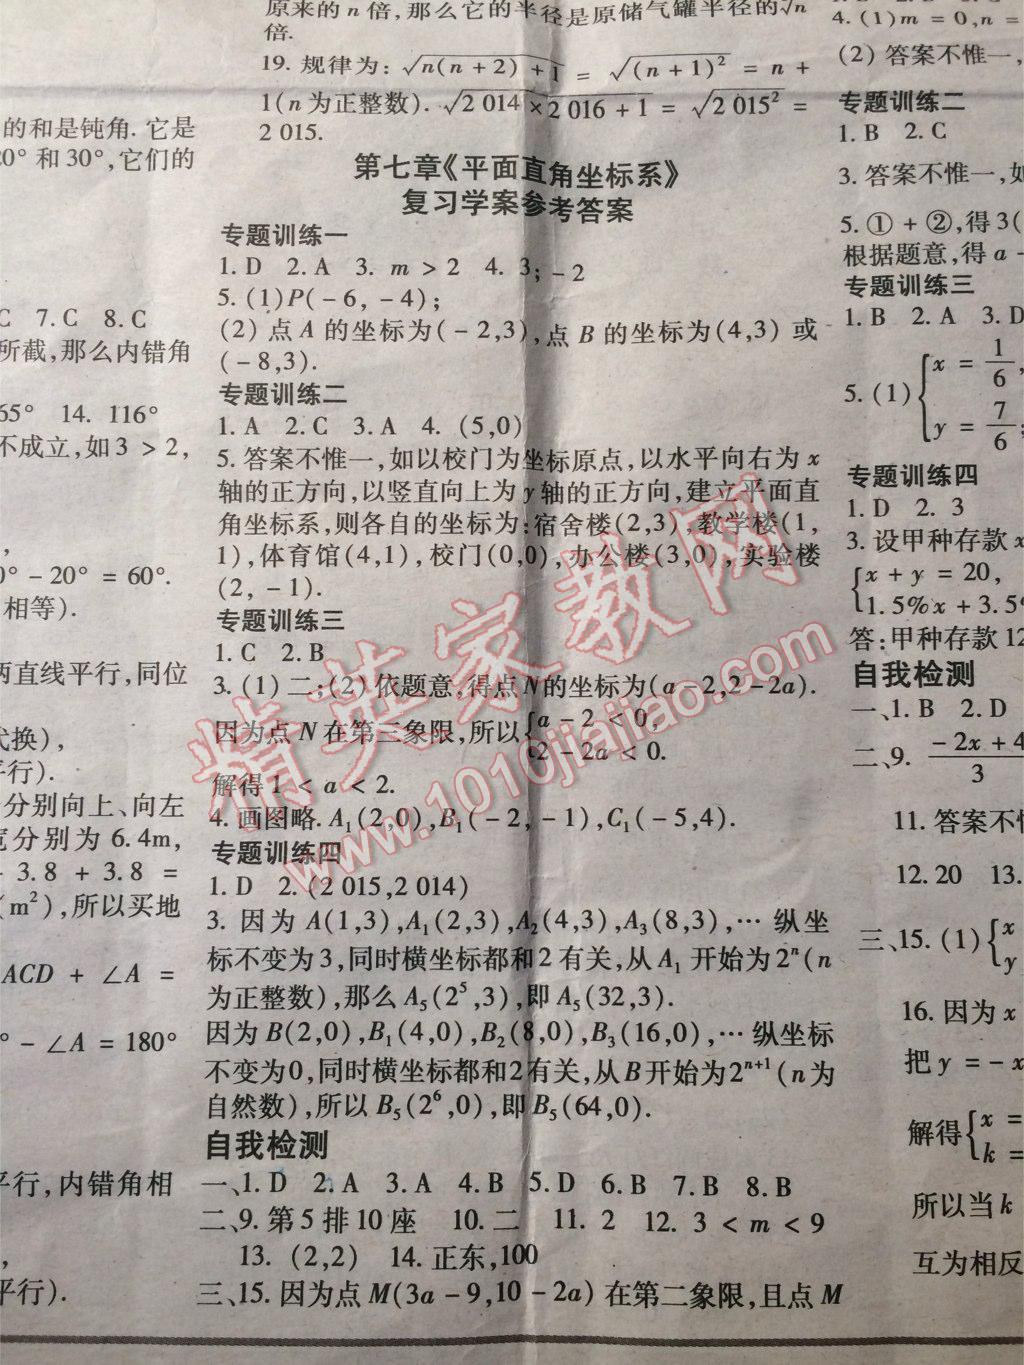 原来的n倍,那么它的半径是原储气罐半径的√n
倍.
19. 规律为: √(n(n+2)+1) = √((n+1)²) = n+
1(n为正整数). √(2 014×2 016+1) = √(2 015²) =
2 015.
第七章《平面直角坐标系》
复习学案参考答案
专题训练一
1. D 2. A 3. m > 2 4. 3; -2
5. (1)P(-6, -4);
(2) 点A的坐标为(-2,3),点B的坐标为(4,3)或
(-8,3).
专题训练二
1. A 2. C 3. A 4. (5,0)
5. 答案不惟一,如以校门为坐标原点,以水平向右为x
轴的正方向,以竖直向上为y轴的正方向,建立平面直
角坐标系,则各自的坐标为:宿舍楼(2,3),教学楼(1,
1),体育馆(4,1),校门(0,0),办公楼(3,0),实验楼
(2, -1).
专题训练三
1. C 2. B
3. (1) 二;(2) 依题意,得点N的坐标为(a-2,2-2a).
因为点N在第三象限,所以{a-2<0,
2-2a<0.
解得1<a<2.
4. 画图略. A₁(2,0),B₁(-2,-1),C₁(-5,4).
专题训练四
1. D 2. (2 015,2 014)
3. 因为A(1,3),A₁(2,3),A₂(4,3),A₃(8,3),⋯纵坐
标不变为3,同时横坐标都和2有关,从A₁开始为2ⁿ(n
为正整数),那么A₅(2⁵,3),即A₅(32,3).
因为B(2,0),B₁(4,0),B₂(8,0),B₃(16,0),⋯纵坐标
不变为0,同时横坐标都和2有关,从B开始为2ⁿ⁺¹(n为
自然数),所以B₅(2⁶,0),即B₅(64,0).
自我检测
一、1. D 2. A 3. A 4. B 5. D 6. B 7. B 8. B
二、9. 第5排10座 10. 二 11. 2 12. 3<m<9
13. (2,2) 14. 正东,100
三、15. 因为点M(3a-9,10-2a)在第二象限,且点M
的和是钝角. 它是
0°和30°,它们的
C 7. C 8. C
所截,那么内错角
65° 14. 116°
不成立,如3>2,
,
0°-20°=60°.
相等).
两直线平行,同位
代换),
平行).
分别向上、向左
宽分别为6.4m,
3.8+3.8=
(m²),所以买地
ACD+∠A=
°-∠A=180°
平行,内错角相
,
平行).
4. (1)m=0,n=
(2) 答案不惟一,
专题训练二
1. B 2. C
3. 答案不惟一,如
5. ①+②,得3(
根据题意,得a-
专题训练三
1. B 2. A 3. D
5. (1){x=1/6,
y=7/6;
专题训练四
1. D 2. 3
3. 设甲种存款x
{x+y=20,
1.5%x+3.5%
答:甲种存款12
自我检测
一、1. B 2. D
二、9. (-2x+4)/3
11. 答案不惟
12. 20 13.
三、15. (1){x
y
16. 因为x
把y=-x
解得{x=
k=
所以当k
互为相反
精英家教网
www.1010jiajiao.com